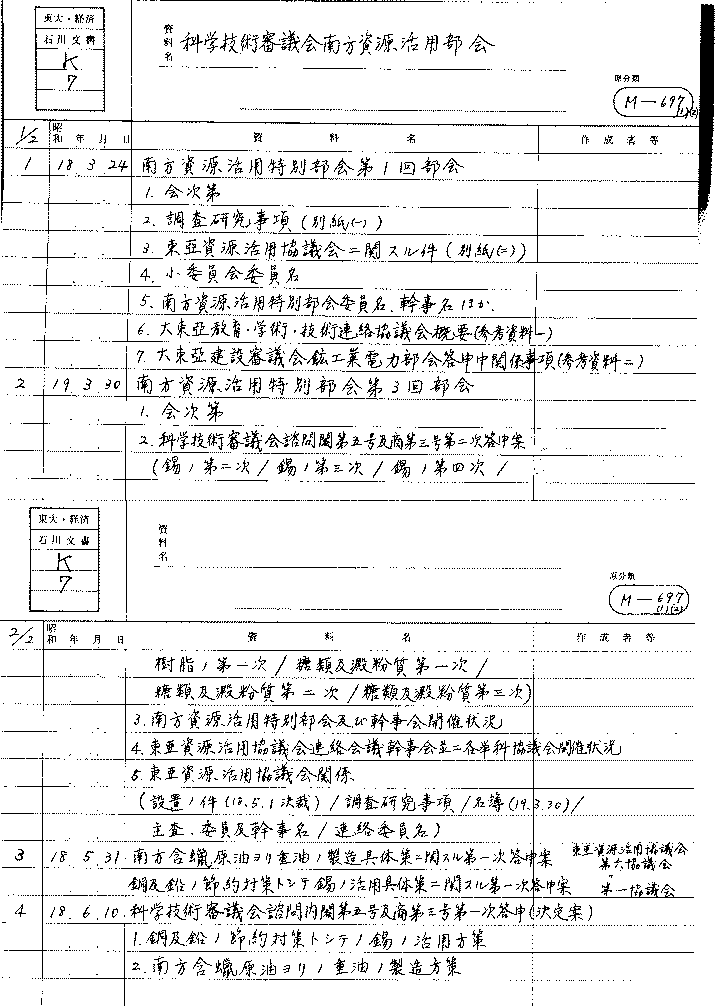 東大・経済
石川文書
K
7
資料名 科学技術審議会南方資源活用部会
原分類
M-697
(1)(2)
1/2 昭和 年 月 日 資料名 作成者等
1 18 3 24 南方資源活用特別部会第1回部会
1. 会次第
2. 調査研究事項(別紙(一))
3. 東亞資源活用協議会ニ関スル件(別紙(ニ))
4. 小委員会委員名
5. 南方資源活用特別部会委員名、幹事名ほか
6. 大東亞教育・学術・技術連絡協議会概要(参考資料一)
7. 大東亞建設審議会鉱工業電力部会答申中関係事項(参考資料二)
2 19 3 30 南方資源活用特別部会第3回部会
1. 会次第
2. 科学技術審議会諮問閣第五号及商第三号第二次答申案
(錫ノ第二次/錫ノ第三次/錫ノ第四次/
東大・経済
石川文書
K
7
資料名
原分類
M-697
(1)(2)
2/2 昭和 年 月 日 資料名 作成者等
樹脂ノ第一次/糖類及澱粉質第一次/
糖類及澱粉質第二次/糖類及澱粉質第三次)
3. 南方資源活用特別部会及び幹事会開催状況
4. 東亞資源活用協議会連絡会議幹事会並ニ各単科協議会開催状況
5. 東亞資源活用協議会関係
(設置ノ件(18.5.1次裁)/調査研究事項/名簿(19.3.30)/
主査、委員及幹事名/連絡委員名)
3 18 5 31 南方含蠟原油ヨリ重油ノ製造具体策ニ関スル第一次答申案 東亞資源活用協議会第六協議会
銅及鉛ノ節約対策トシテ錫ノ活用具体策ニ関スル第一次答申案 〃 第一協議会
4 18 6 10 科学技術審議会諮問内閣第五号及商第三号第一次答申(決定案)
1. 銅及鉛ノ節約対策トシテノ錫ノ活用方策
2. 南方含蠟原油ヨリノ重油ノ製造方策